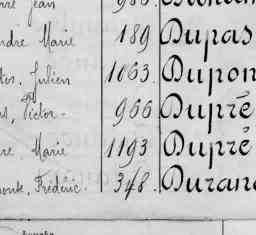 Jean 980
ndre Marie 189 Dupas
tor, Julien 1063 Dupon
Victor 966 Dupré
re, Marie 1193 Dupré
Frédéric. 348 Durand